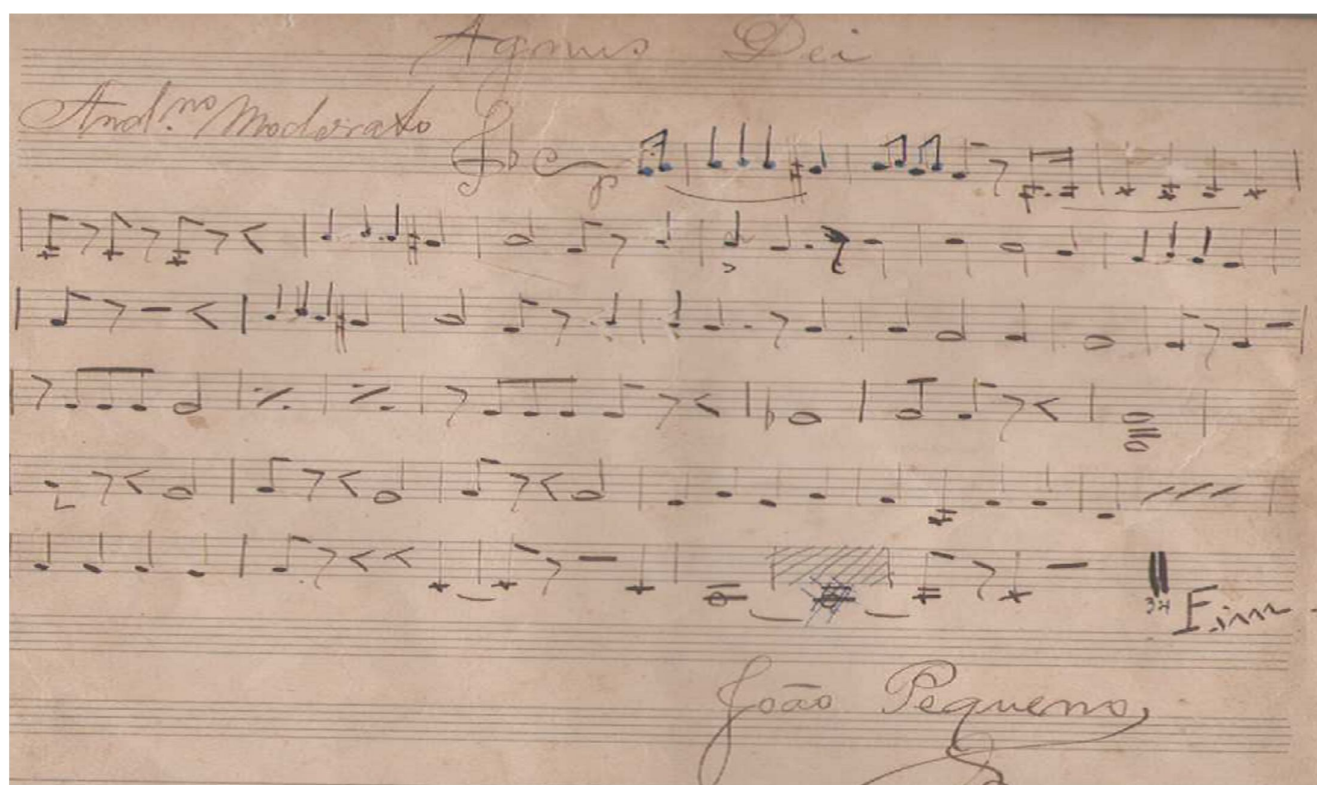 Agnus Dei
And.no Moderato
p
34 Fim
João Pequeno